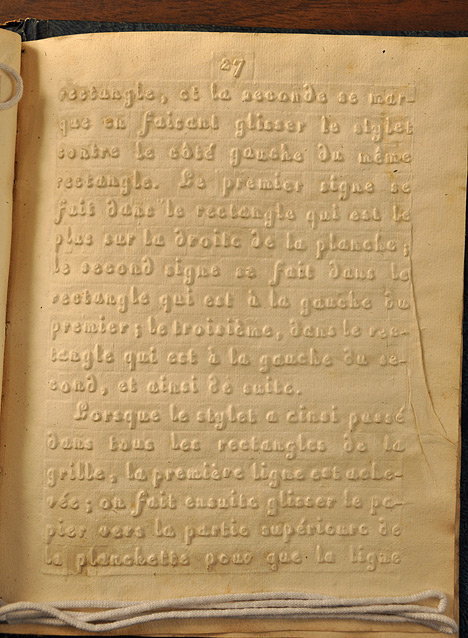 27
rectangle, et la seconde se mar-
que en faisant glisser le stylet
contre le côté gauche du même
rectangle. Le premier signe se
fait dans le rectangle qui est le
plus sur la droite de la planche;
le second signe se fait dans le
rectangle qui est à la gauche du
premier; le troisième, dans le rec-
tangle qui est à la gauche du se-
cond, et ainsi de suite.
Lorsque le stylet a ainsi passé
dans tous les rectangles de la
grille, la première ligne est ache-
vée; on fait ensuite glisser le pa-
pier vers la partie supérieure de
la planchette pour que la ligne